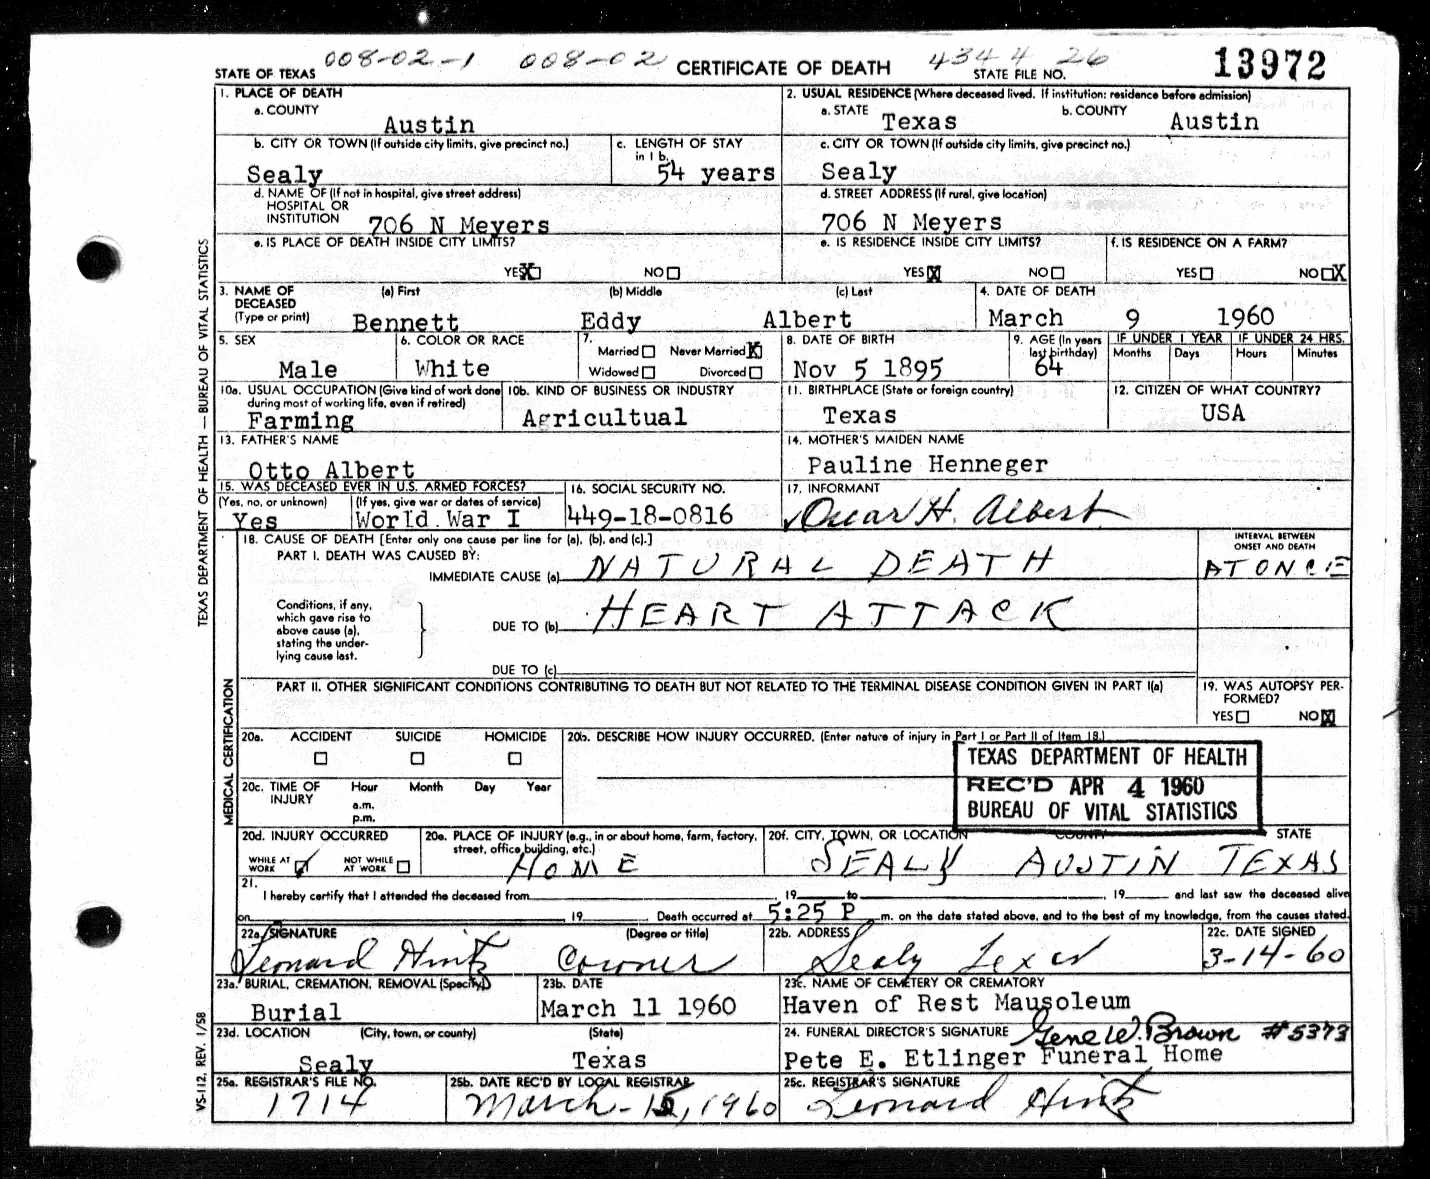 008-02-1 008-02 434 4 26
STATE OF TEXAS CERTIFICATE OF DEATH STATE FILE NO. 13972
1. PLACE OF DEATH
a. COUNTY
Austin
2. USUAL RESIDENCE (Where deceased lived. If institution: residence before admission)
a. STATE b. COUNTY
Texas Austin
b. CITY OR TOWN (If outside city limits, give precinct no.)
Sealy
c. LENGTH OF STAY
in 1 b.
54 years
c. CITY OR TOWN (If outside city limits, give precinct no.)
Sealy
d. NAME OF (If not in hospital, give street address)
HOSPITAL OR
INSTITUTION 706 N Meyers
d. STREET ADDRESS (If rural, give location)
706 N Meyers
e. IS PLACE OF DEATH INSIDE CITY LIMITS?
YES X NO
e. IS RESIDENCE INSIDE CITY LIMITS?
YES X NO
f. IS RESIDENCE ON A FARM?
YES NO X
3. NAME OF
DECEASED
(Type or print)
(a) First (b) Middle (c) Last
Bennett Eddy Albert
4. DATE OF DEATH
March 9 1960
5. SEX
Male
6. COLOR OR RACE
White
7.
Married Never Married X
Widowed Divorced
8. DATE OF BIRTH
Nov 5 1895
9. AGE (In years
last birthday)
64
IF UNDER 1 YEAR
Months Days
IF UNDER 24 HRS.
Hours Minutes
10a. USUAL OCCUPATION (Give kind of work done
during most of working life, even if retired)
Farming
10b. KIND OF BUSINESS OR INDUSTRY
Agricultual
11. BIRTHPLACE (State or foreign country)
Texas
12. CITIZEN OF WHAT COUNTRY?
USA
13. FATHER'S NAME
Otto Albert
14. MOTHER'S MAIDEN NAME
Pauline Henneger
15. WAS DECEASED EVER IN U.S. ARMED FORCES?
(Yes, no, or unknown) (If yes, give war or dates of service)
Yes World War I
16. SOCIAL SECURITY NO.
449-18-0816
17. INFORMANT
Oscar H. Albert
18. CAUSE OF DEATH [Enter only one cause per line for (a), (b), and (c).]
PART I. DEATH WAS CAUSED BY:
IMMEDIATE CAUSE (a) NATURAL DEATH
INTERVAL BETWEEN
ONSET AND DEATH
AT ONCE
Conditions, if any,
which gave rise to
above cause (a),
stating the under-
lying cause last.
DUE TO (b) HEART ATTACK
DUE TO (c)
PART II. OTHER SIGNIFICANT CONDITIONS CONTRIBUTING TO DEATH BUT NOT RELATED TO THE TERMINAL DISEASE CONDITION GIVEN IN PART I(a)
19. WAS AUTOPSY PER-
FORMED?
YES NO X
20a. ACCIDENT SUICIDE HOMICIDE
20b. DESCRIBE HOW INJURY OCCURRED. (Enter nature of injury in Part I or Part II of Item 18.)
TEXAS DEPARTMENT OF HEALTH
REC'D APR 4 1960
BUREAU OF VITAL STATISTICS
20c. TIME OF
INJURY
Hour Month Day Year
a.m.
p.m.
20d. INJURY OCCURRED
WHILE AT
WORK
NOT WHILE
AT WORK
20e. PLACE OF INJURY (e.g., in or about home, farm, factory,
street, office building, etc.)
HOME
20f. CITY, TOWN, OR LOCATION COUNTY STATE
SEALY AUSTIN TEXAS
21.
I hereby certify that I attended the deceased from , 19 to , 19 and last saw the deceased alive
on 19 . Death occurred at 5:25 P m. on the date stated above, and to the best of my knowledge, from the causes stated.
22a. SIGNATURE (Degree or title)
Leonard Hintz Coroner
22b. ADDRESS
Sealy Texas
22c. DATE SIGNED
3-14-60
23a. BURIAL, CREMATION, REMOVAL (Specify)
Burial
23b. DATE
March 11 1960
23c. NAME OF CEMETERY OR CREMATORY
Haven of Rest Mausoleum
23d. LOCATION (City, town, or county) (State)
Sealy Texas
24. FUNERAL DIRECTOR'S SIGNATURE Gene W. Brown #5373
Pete E. Etlinger Funeral Home
25a. REGISTRAR'S FILE NO.
1714
25b. DATE REC'D BY LOCAL REGISTRAR
March-15, 1960
25c. REGISTRAR'S SIGNATURE
Leonard Hintz
TEXAS DEPARTMENT OF HEALTH — BUREAU OF VITAL STATISTICS
MEDICAL CERTIFICATION
VS-112, REV. 1/58